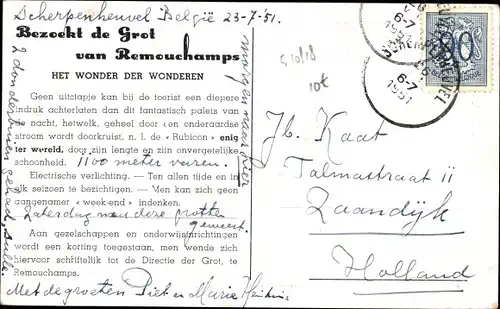 Scherpenheuvel België 23-7-'51.
Bezoekt de Grot
van Remouchamps
HET WONDER DER WONDEREN
Geen uitstapje kan bij de toerist een diepere
indruk achterlaten dan dit fantastisch paleis van
de nacht, hetwelk, geheel door een onderaardse
stroom wordt doorkruist, n. l. de « Rubicon » enig
ter wereld, door zijn lengte en zijn onvergetelijke
schoonheid. 1100 meter varen.
Electrische verlichting. — Ten allen tijde en in
elk seizoen te bezichtigen. — Men kan zich geen
aangenamer « week-end » indenken.
Zaterdag naar deze grotten
geweest.
Aan gezelschappen en onderwijsinrichtingen
wordt een korting toegestaan, men wende zich
hiervoor schriftelijk tot de Directie der Grot, te
Remouchamps.
Met de groeten Piet en Marie
morgen naar hier
2 donderbuien gehad,
51018
10t
6-7
1951
6-7
1951
Jb. Kaat
Talmastraat 11
Zaandijk
Holland